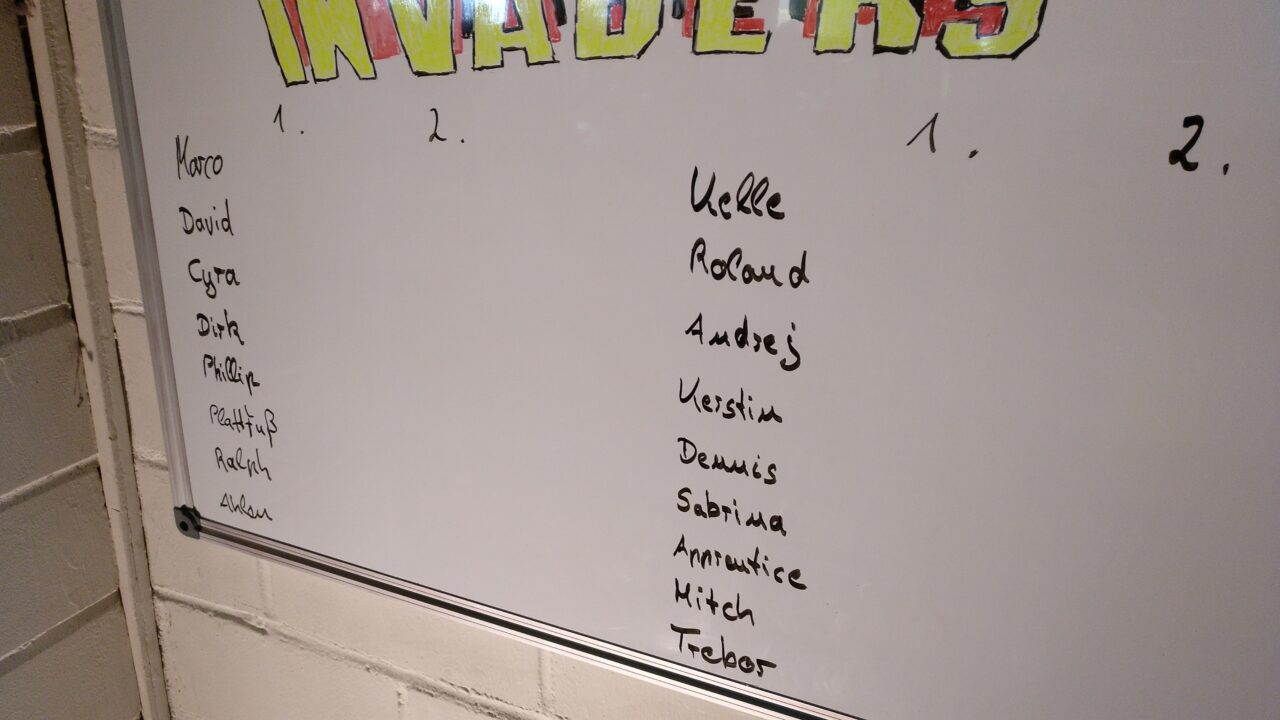 INVADERS
1. 2.
Marco
David
Cyra
Dirk
Phillip
Plattfuß
Ralph
Ahlen
1. 2.
Kelle
Roland
Andrej
Kerstin
Dennis
Sabrina
Apprentice
Mitch
Trebor